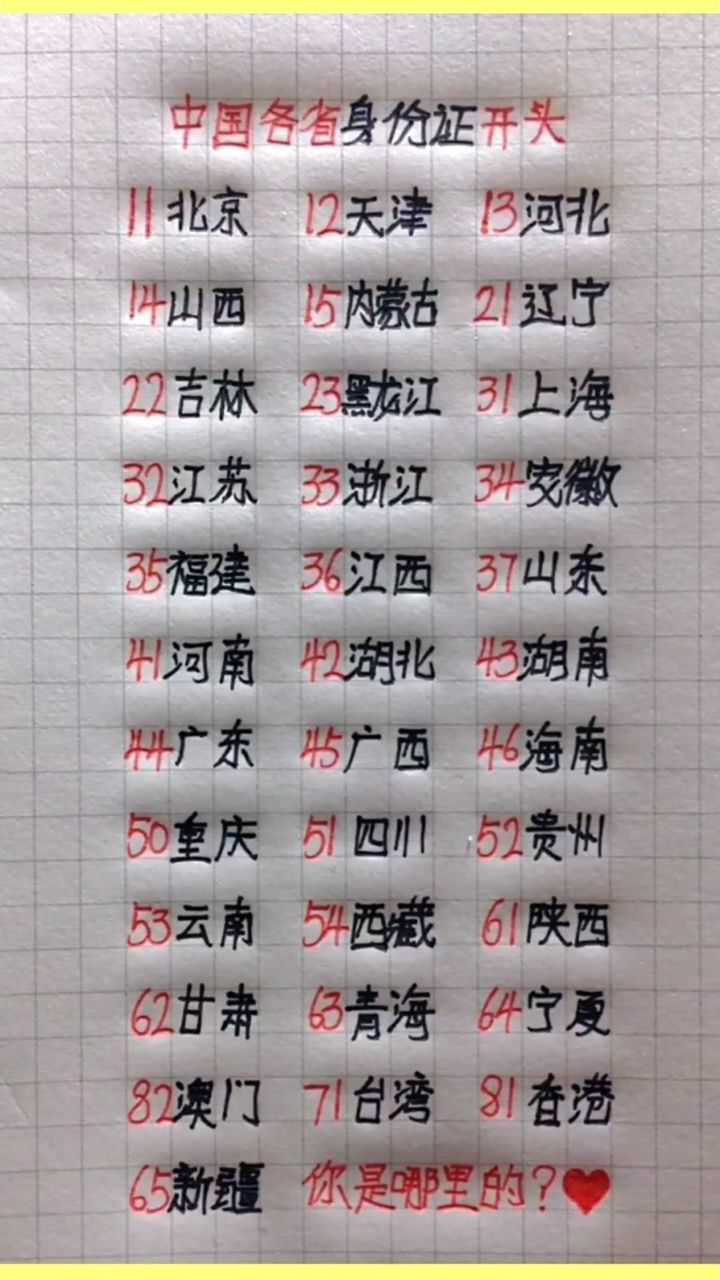 中国各省身份证开头
11北京 12天津 13河北
14山西 15内蒙古 21辽宁
22吉林 23黑龙江 31上海
32江苏 33浙江 34安徽
35福建 36江西 37山东
41河南 42湖北 43湖南
44广东 45广西 46海南
50重庆 51四川 52贵州
53云南 54西藏 61陕西
62甘肃 63青海 64宁夏
82澳门 71台湾 81香港
65新疆 你是哪里的?❤